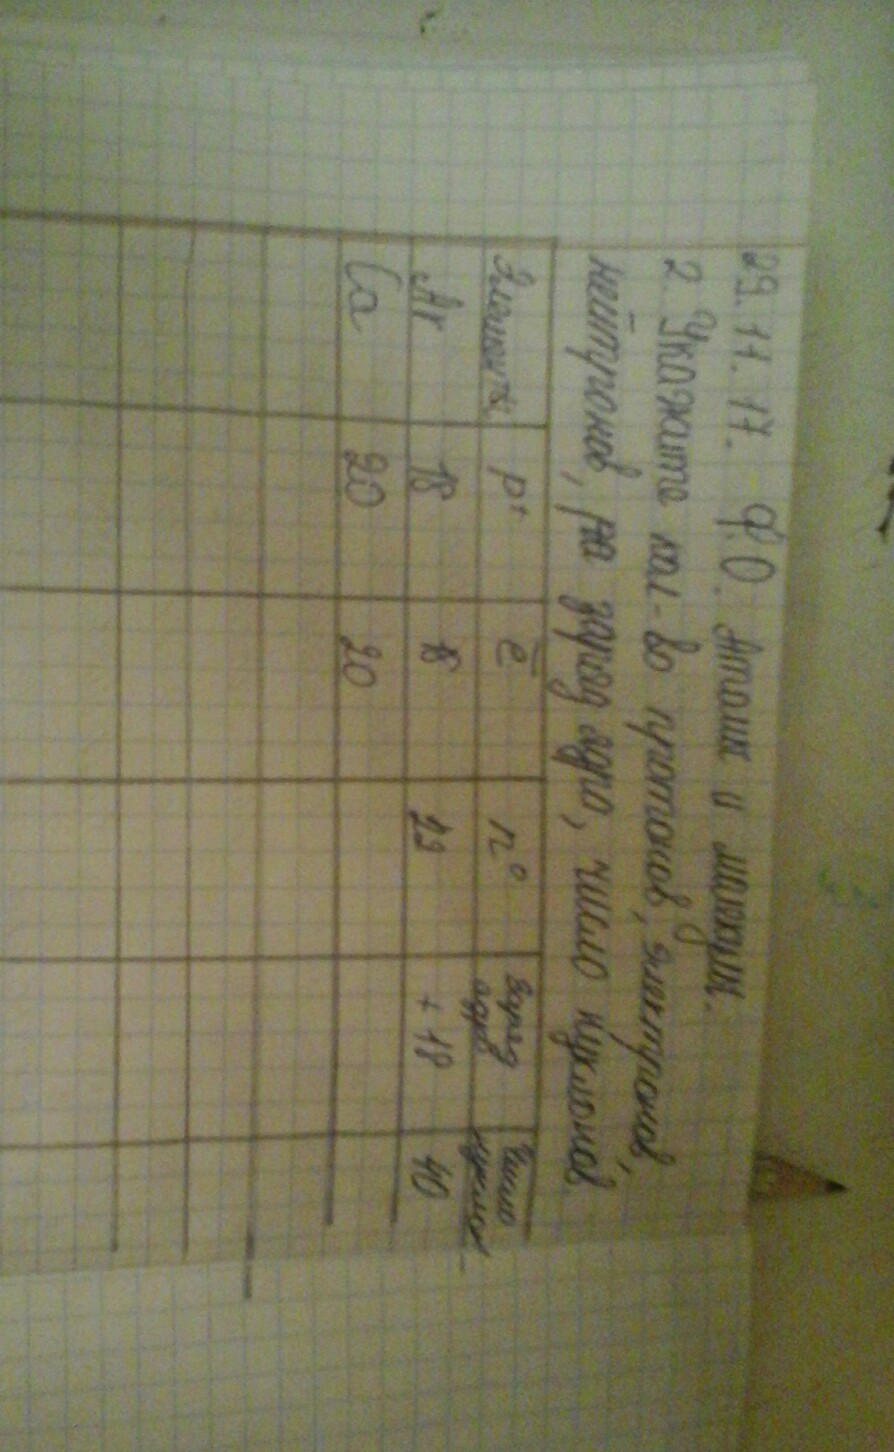 29.11.17. Ф.О. Атомы и молекулы.
2. Укажите кол-во протонов, электронов,
нейтронов, заряд ядра, число нуклонов
Элементы p⁺ e̅ n⁰ Заряд ядра Число
Ar 18 18 22 +18 40
Ca 20 20